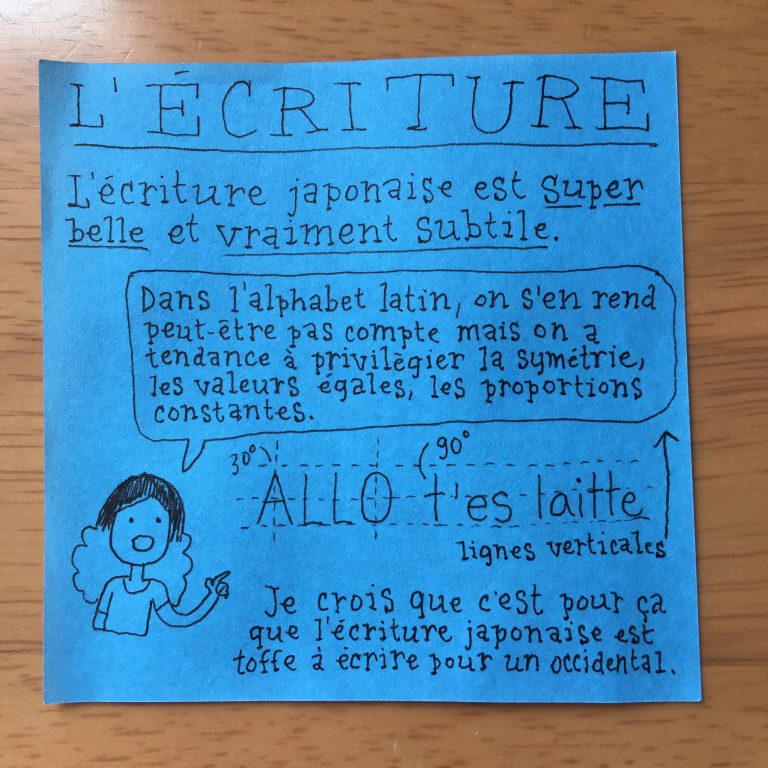 L'ÉCRITURE
L'écriture japonaise est super
belle et vraiment subtile.
Dans l'alphabet latin, on s'en rend
peut-être pas compte mais on a
tendance à privilègier la symétrie,
les valeurs égales, les proportions
constantes.
30° 90°
ALLO t'es laitte
lignes verticales
Je crois que c'est pour ça
que l'écriture japonaise est
toffe à écrire pour un occidental.